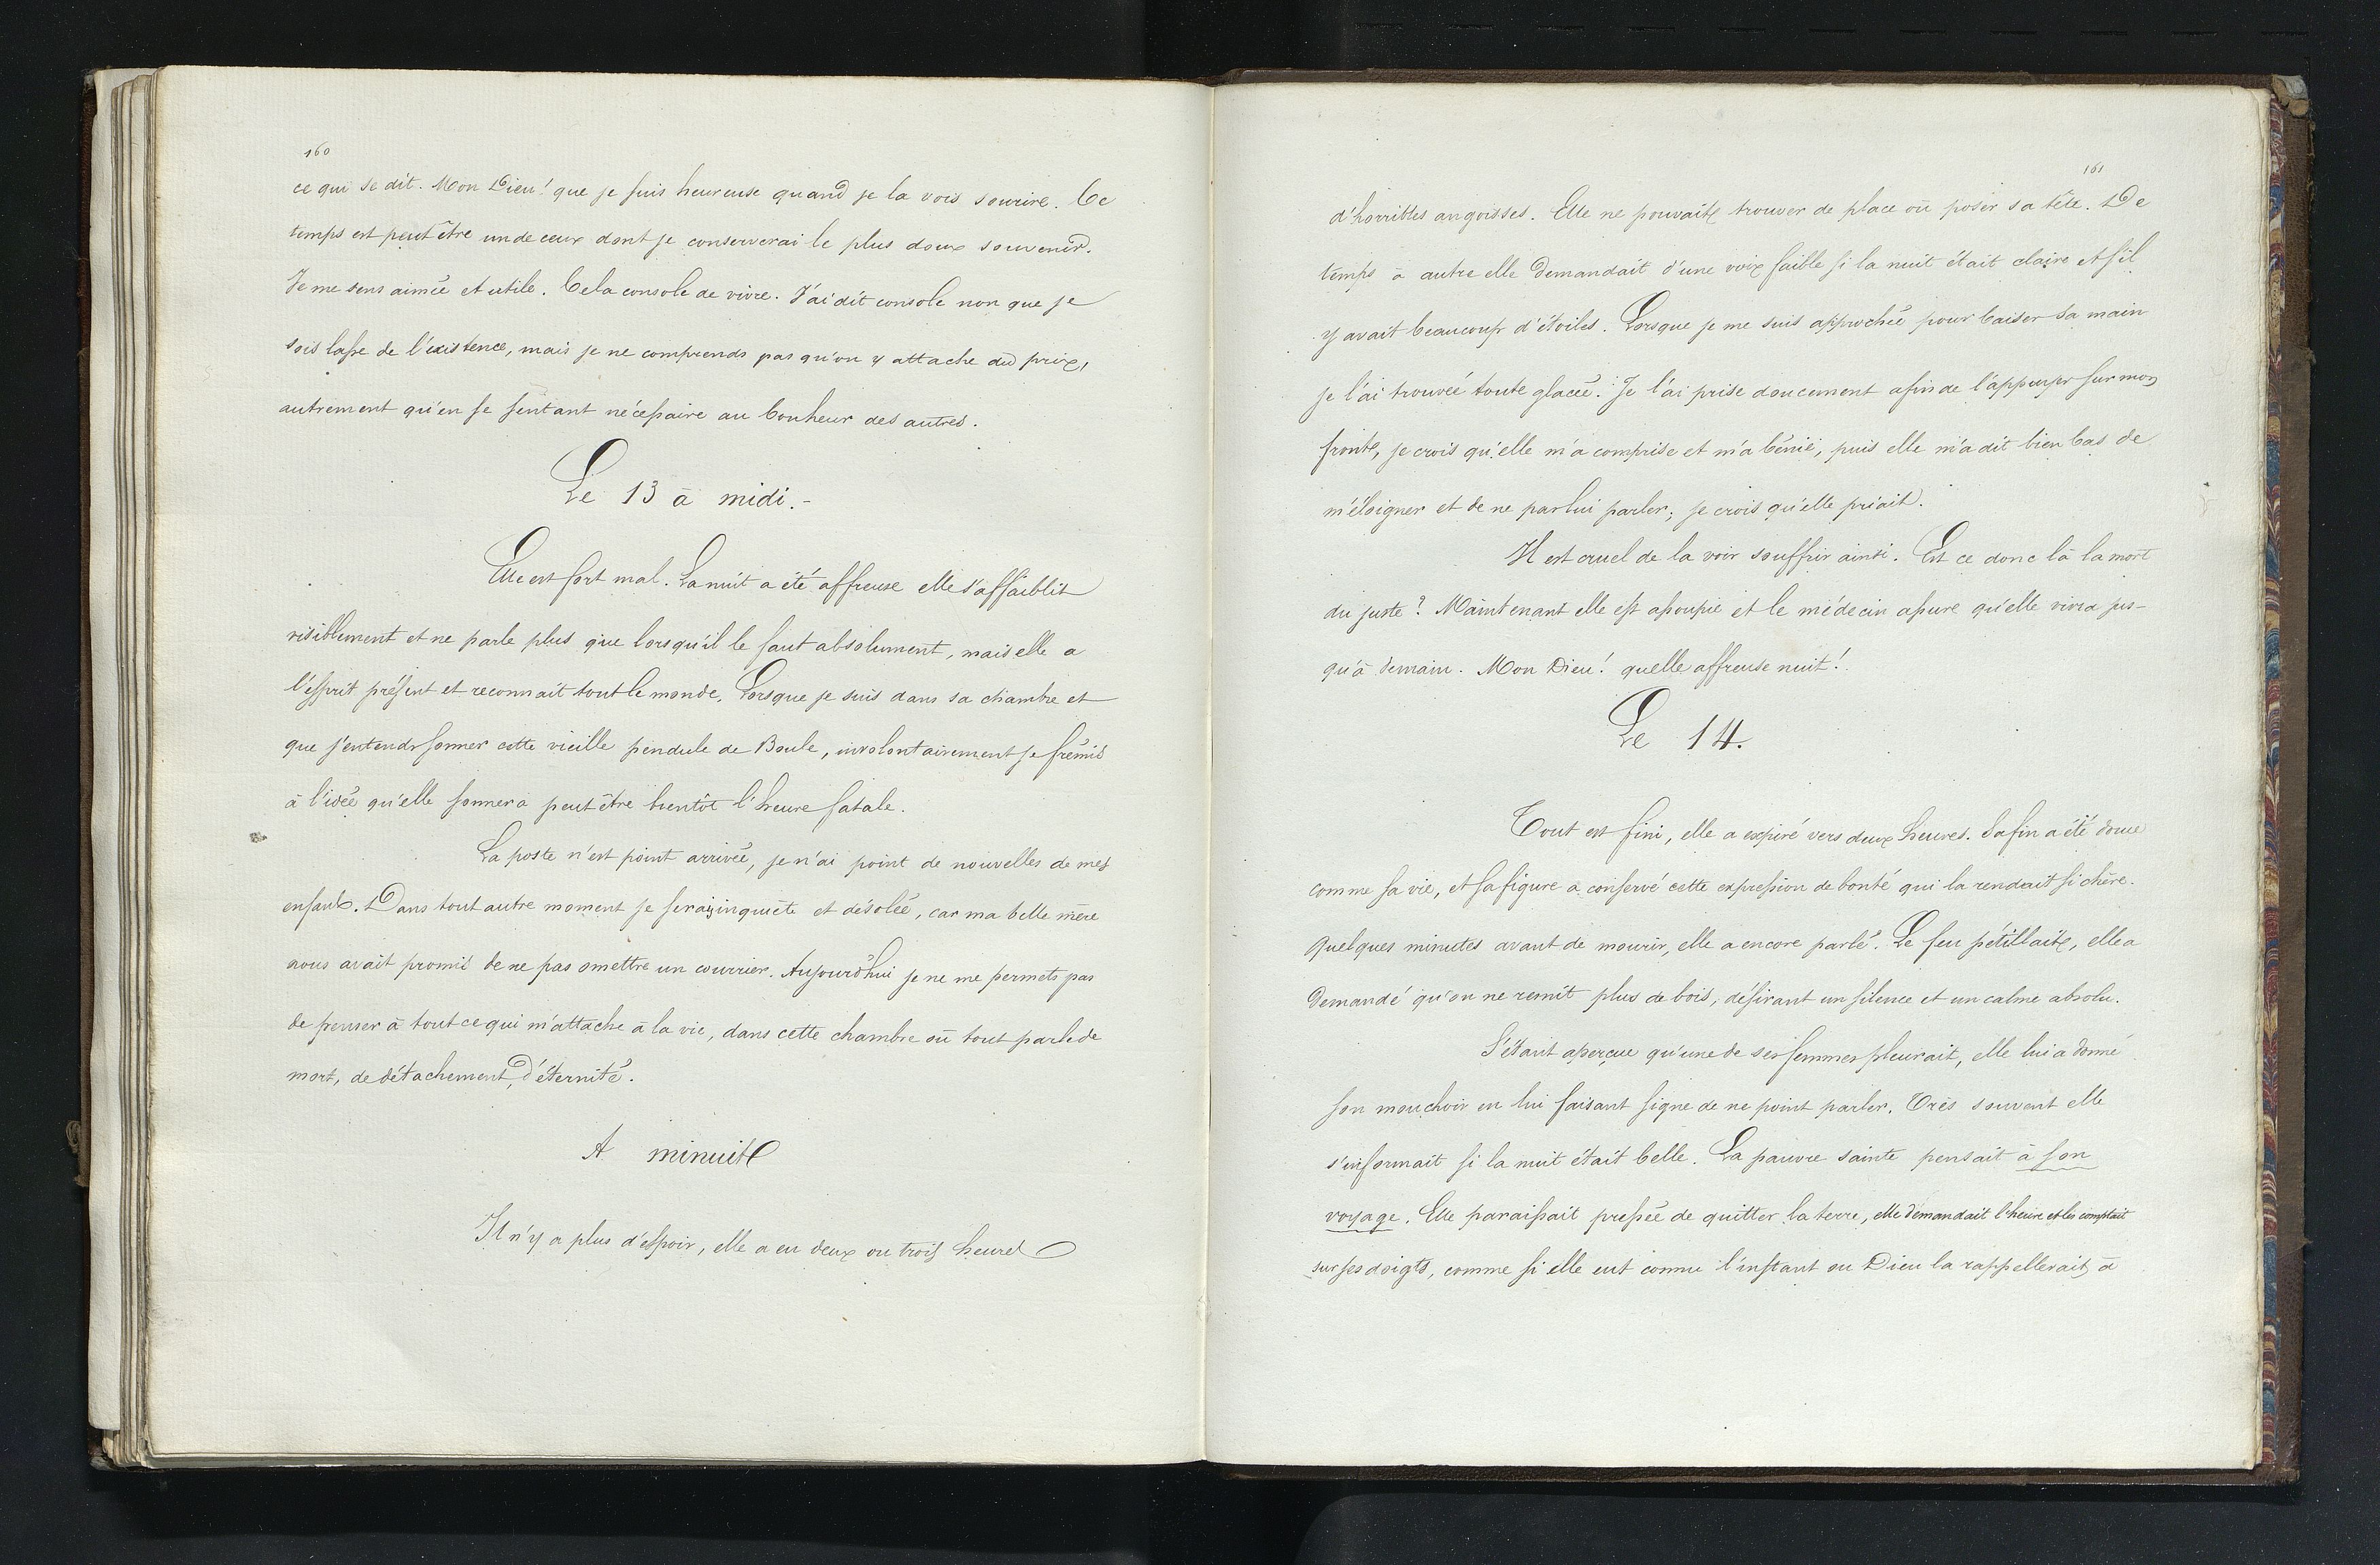 160
ce qui se dit. Mon Dieu! que je suis heureuse quand je la vois sourire. Ce
temps est peut être un de ceux dont je conserverai le plus doux souvenir.
Je me sens aimée et utile. Cela console de vivre. J'ai dit console non que je
sois lasse de l'existence, mais je ne comprends pas qu'on y attache du prix,
autrement qu'en se sentant nécessaire au bonheur des autres.
Le 13 à midi.-
Elle est fort mal. La nuit a été affreuse elle s'affaiblit
visiblement et ne parle plus que lorsqu'il le faut absolument, mais elle a
l'esprit présent et reconnait tout le monde. Lorsque je suis dans sa chambre et
que j'entends sonner cette vieille pendule de Boule, involontairement je frémis
à l'idée qu'elle sonnera peut être bientôt l'heure fatale.
La poste n'est point arrivée, je n'ai point de nouvelles de mes
enfants. Dans tout autre moment je serais inquiète et désolée, car ma belle mère
nous avait promis de ne pas omettre un courrier. Aujourd'hui je ne me permets pas
de penser à tout ce qui m'attache à la vie, dans cette chambre où tout parle de
mort, de détachement, d'éternité.
A minuit
Il n'y a plus d'espoir, elle a eu deux ou trois heures
161
d'horribles angoisses. Elle ne pouvait trouver de place où poser sa tête. De
temps à autre elle demandait d'une voix faible si la nuit était claire et s'il
y avait beaucoup d'étoiles. Lorsque je me suis approchée pour baiser sa main
je l'ai trouvée toute glacée. Je l'ai prise doucement afin de l'appuyer sur mon
front, je crois qu'elle m'a comprise et m'a bénie, puis elle m'a dit bien bas de
m'éloigner et de ne pas lui parler; je crois qu'elle priait.
Il est cruel de la voir souffrir ainsi. Est ce donc là la mort
du juste? Maintenant elle est assoupie et le médecin assure qu'elle vivra jus-
qu'à demain. Mon Dieu! quelle affreuse nuit!
Le 14.
Tout est fini, elle a expiré vers deux heures. Sa fin a été douce
comme sa vie, et sa figure a conservé cette expression de bonté qui la rendait si chère.
Quelques minutes avant de mourir, elle a encore parlé. Le feu pétillait, elle a
demandé qu'on ne remît plus de bois, désirant un silence et un calme absolu.
S'étant aperçue qu'une de ses femmes pleurait, elle lui a donné
son mouchoir en lui faisant signe de ne point parler. Très souvent elle
s'informait si la nuit était belle. La pauvre sainte pensait à son
voyage. Elle paraissait pressée de quitter la terre, elle demandait l'heure et les comptait
sur ses doigts, comme si elle eut connu l'instant ou Dieu la rappellerait à